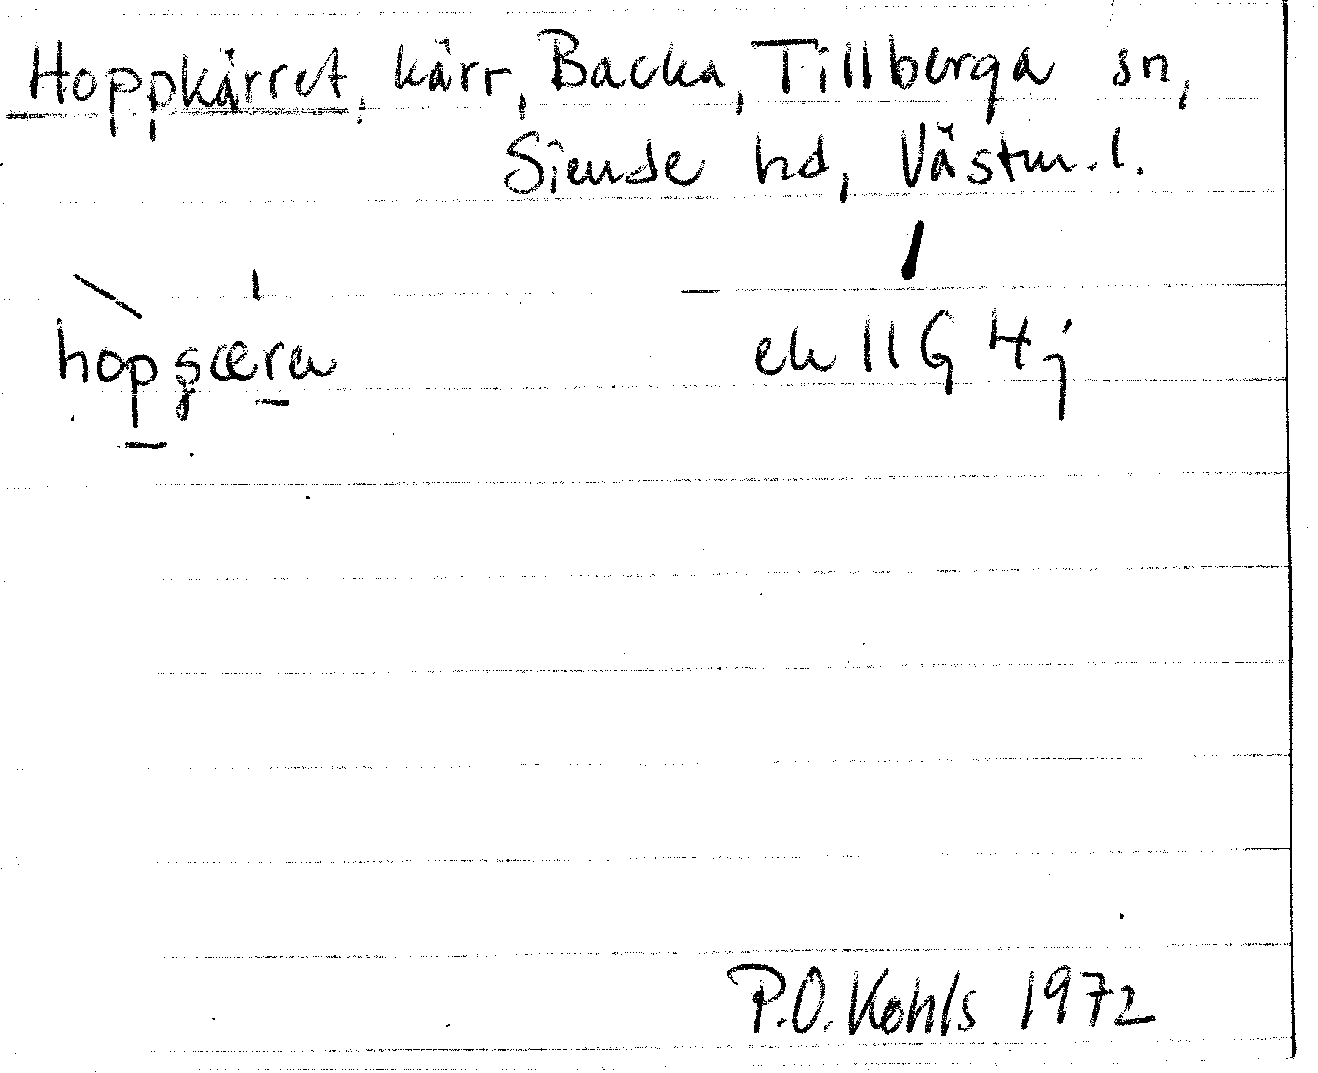 Hoppkärret, kärr, Backa, Tillberga sn,
Siende hd, Västm.l.
hopʂæra
ek 11G 4j
P.O. Kohls 1972